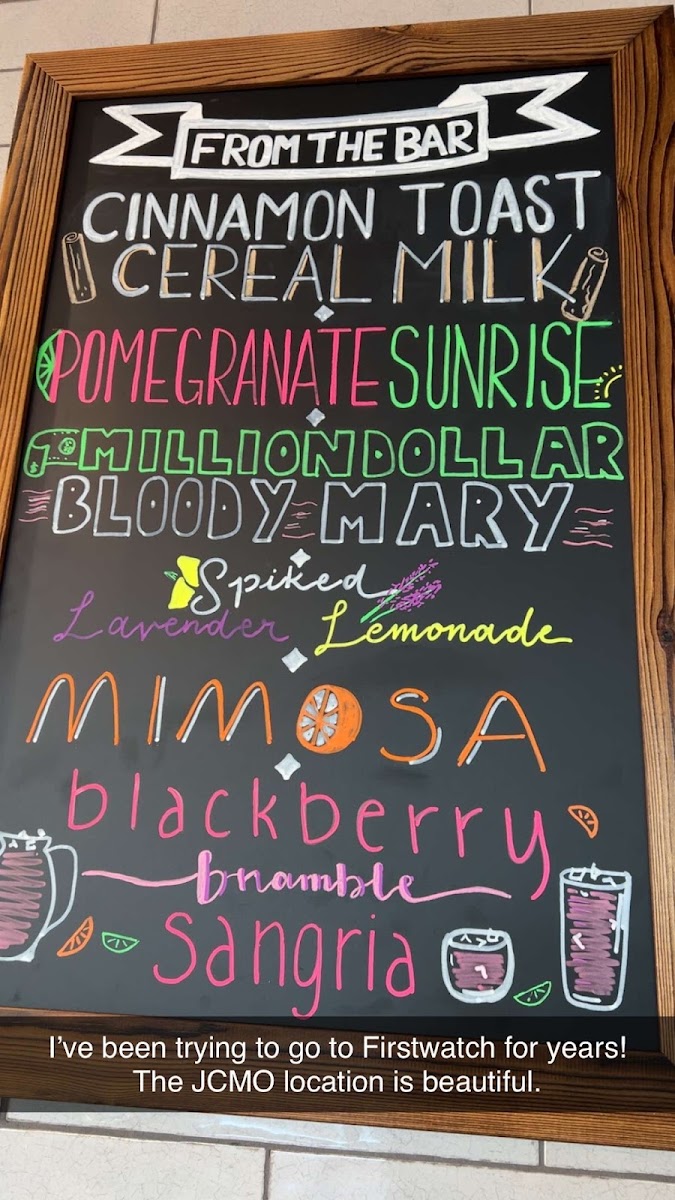 FROM THE BAR
CINNAMON TOAST
CEREAL MILK
POMEGRANATE SUNRISE
MILLION DOLLAR
BLOODY MARY
Spiked
Lavender Lemonade
MIMOSA
blackberry
bramble
sangria
I've been trying to go to Firstwatch for years!
The JCMO location is beautiful.